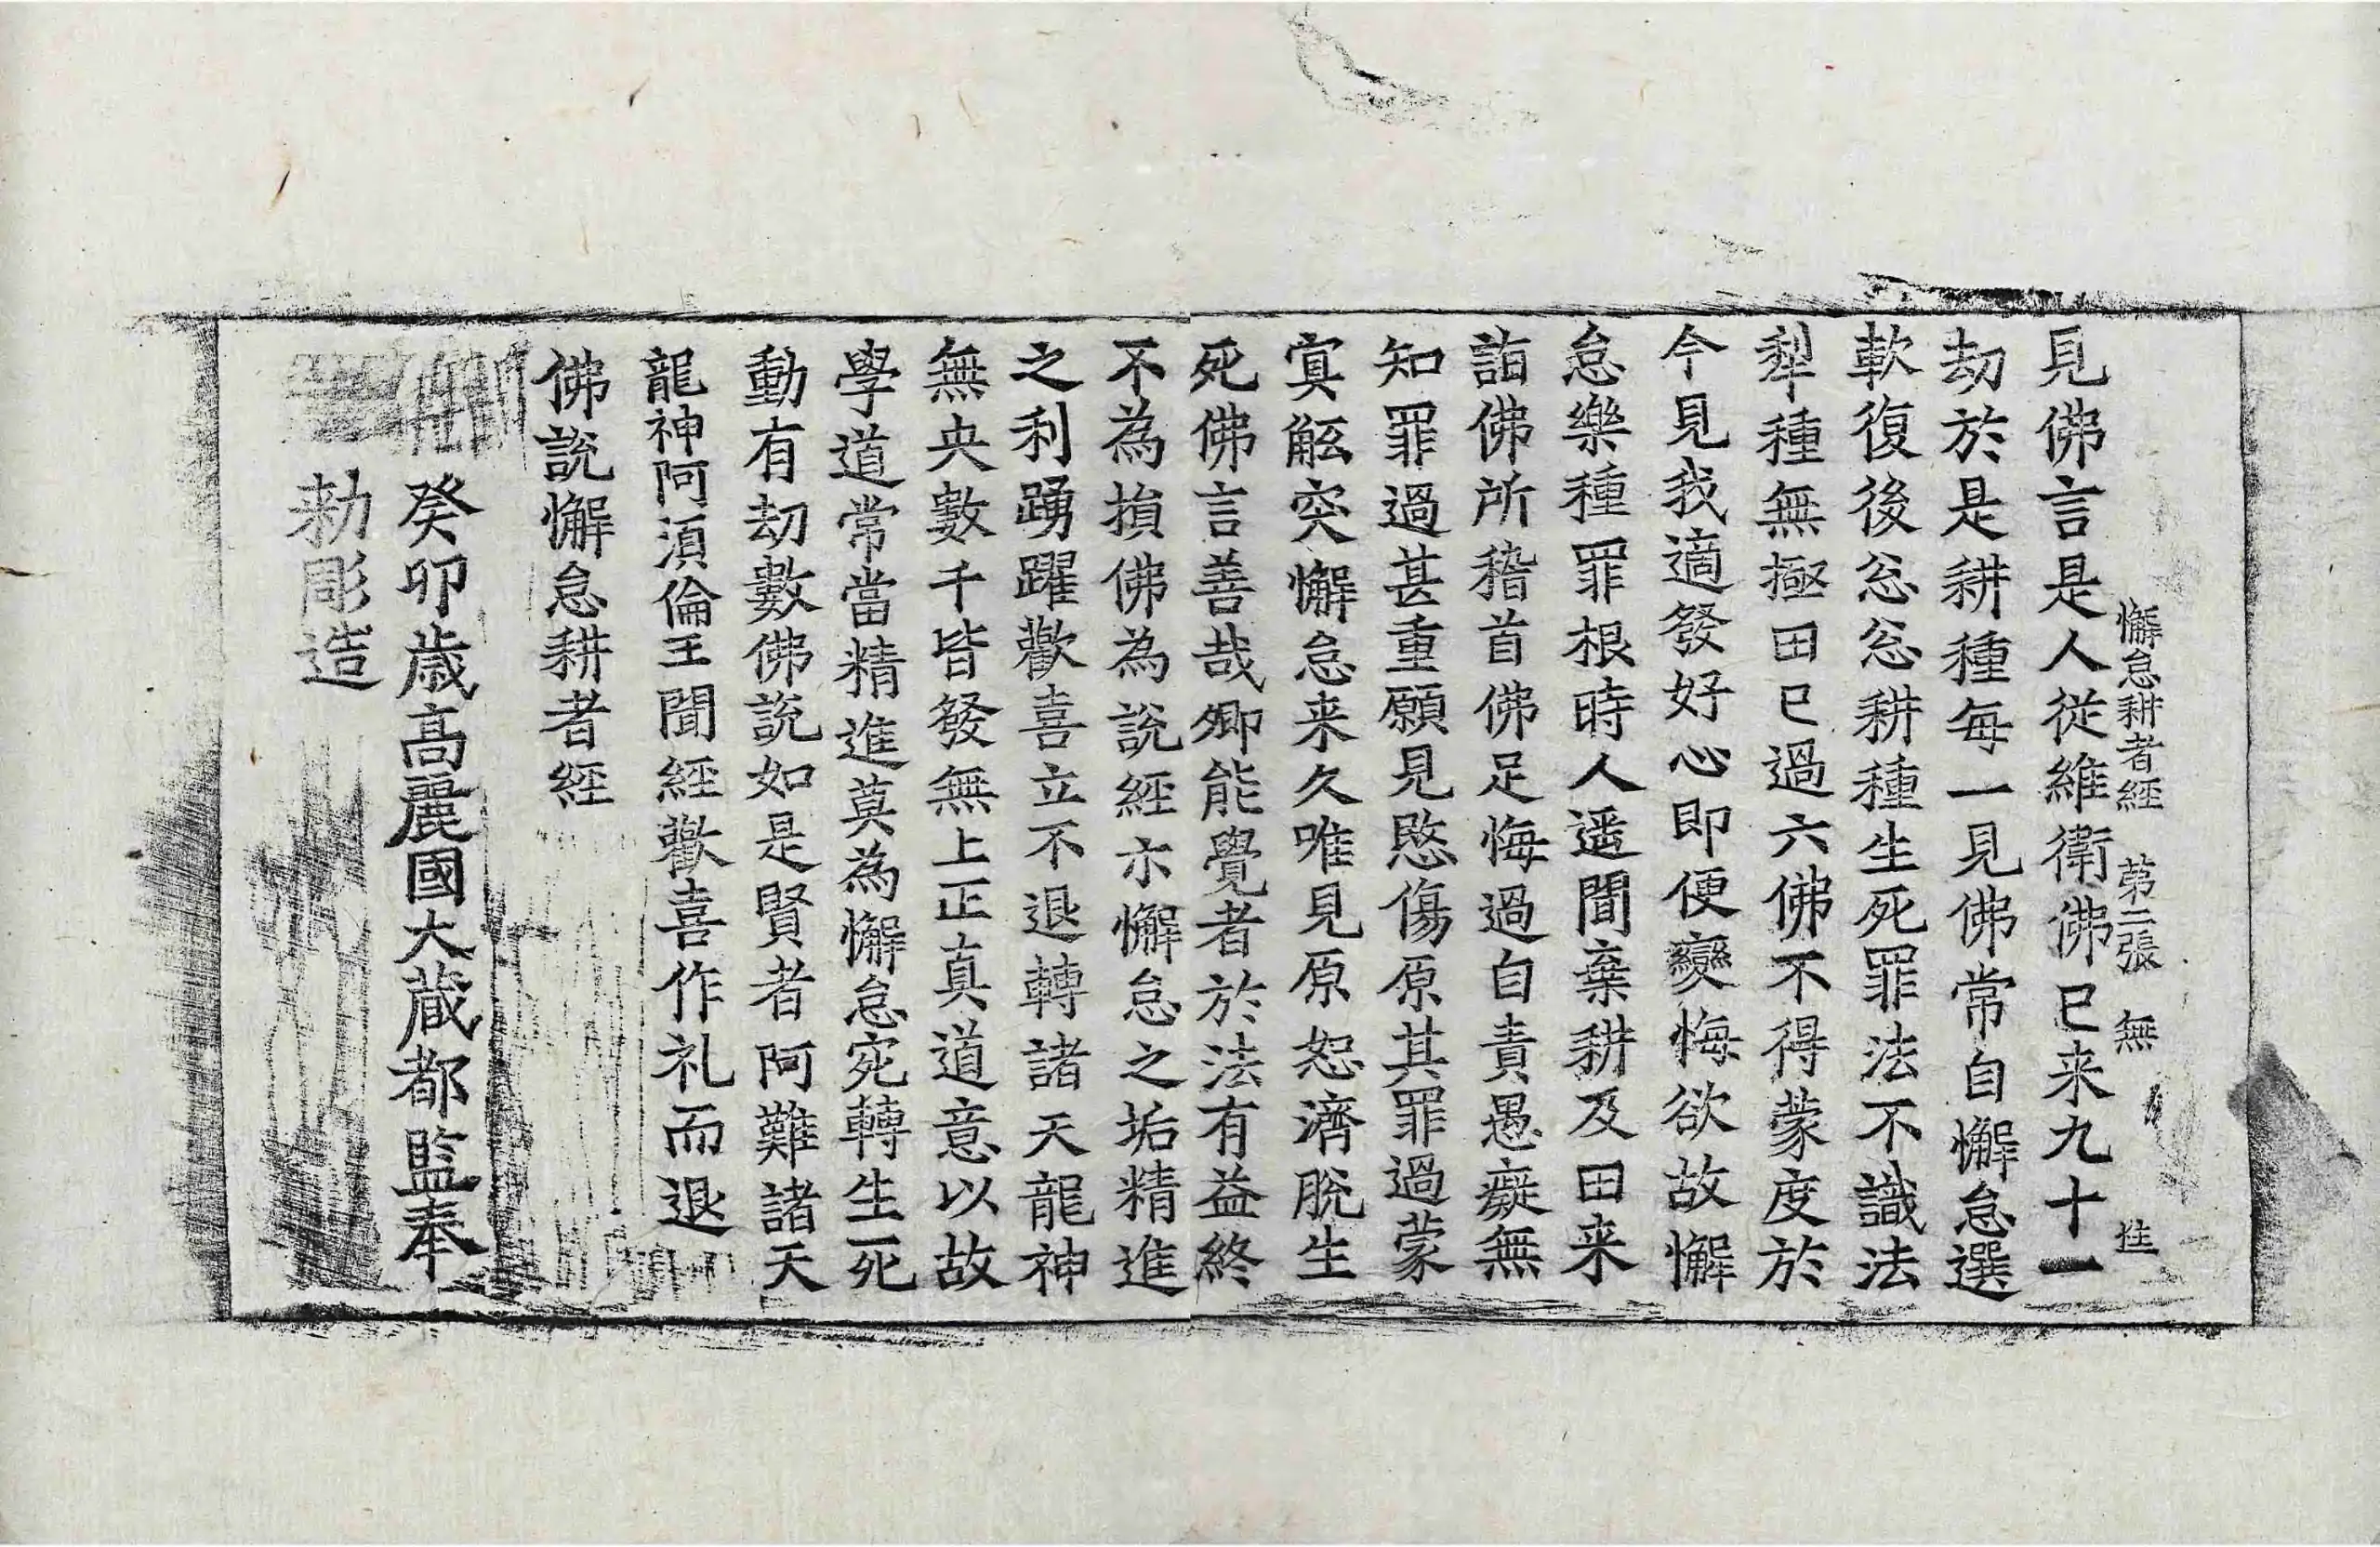 懈怠耕者經 第二張 無
見佛言是人從維衛佛已来九十一
劫於是耕種每一見佛常自懈怠選
軟復後忩忩耕種生死罪法不識法
犁種無極田已過六佛不得蒙度於
今見我適發好心即便變悔欲故懈
怠樂種罪根時人遥聞棄耕及田来
詣佛所稽首佛足悔過自責愚癡無
知罪過甚重願見愍傷原其罪過蒙
冥觝突懈怠来久唯見原恕濟脫生
死佛言善哉卿能覺者於法有益終
不為損佛為說經亦懈怠之垢精進
之利踴躍歡喜立不退轉諸天龍神
無央數千皆發無上正真道意以故
學道常當精進莫為懈怠宛轉生死
動有劫數佛說如是賢者阿難諸天
龍神阿湏倫王聞經歡喜作礼而退
佛說懈怠耕者經
癸卯歲高麗國大藏都監奉
勑彫造